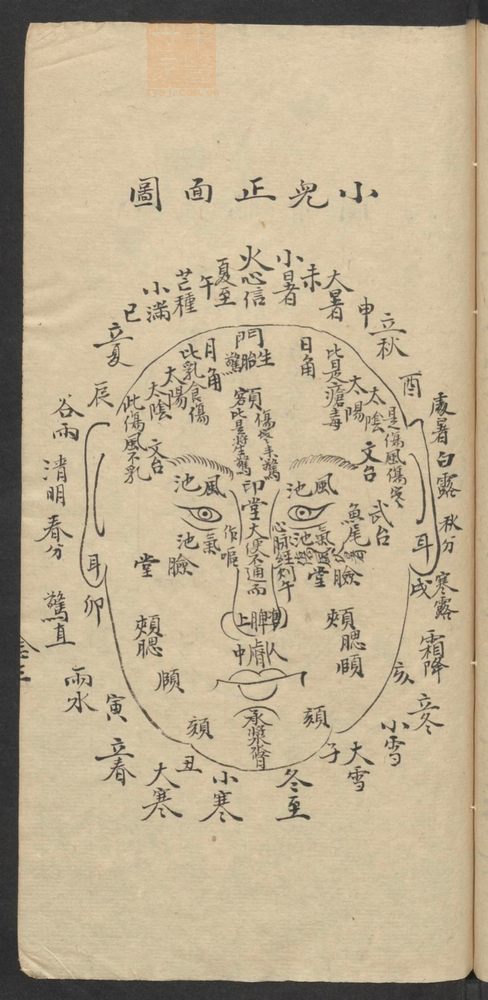 小兒正面圖
火心信
小暑
未
大暑
申
立秋
酉
處暑
白露
秋分
寒露
戌
霜降
亥
立冬
小雪
大雪
子
冬至
小寒
丑
大寒
立春
寅
雨水
驚直
卯
春分
清明
谷雨
辰
立夏
巳
小滿
芒種
午
夏至
門
生胎驚
日角
月角
此是瘡毒
太陽
太陰
是傷風傷寒
文台
武台
魚尾
耳
此乳食傷
太陽
太陰
此傷風不乳
文台
耳
額
印堂
大便不通而
風池
風池
氣池
氣池
作嘔
心脉經刻午
臉堂
臉堂
頰腮
頰腮
頤
頤
人中
承漿
頦
頦